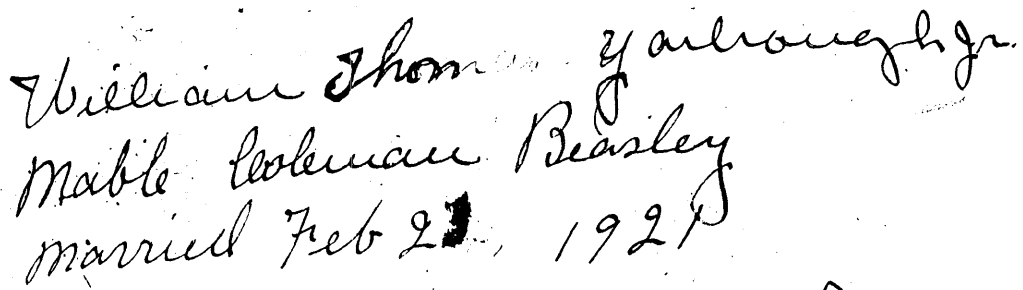 William Thomas Yarbrough Jr.
Mable Coleman Beasley
Married Feb 2 , 1921